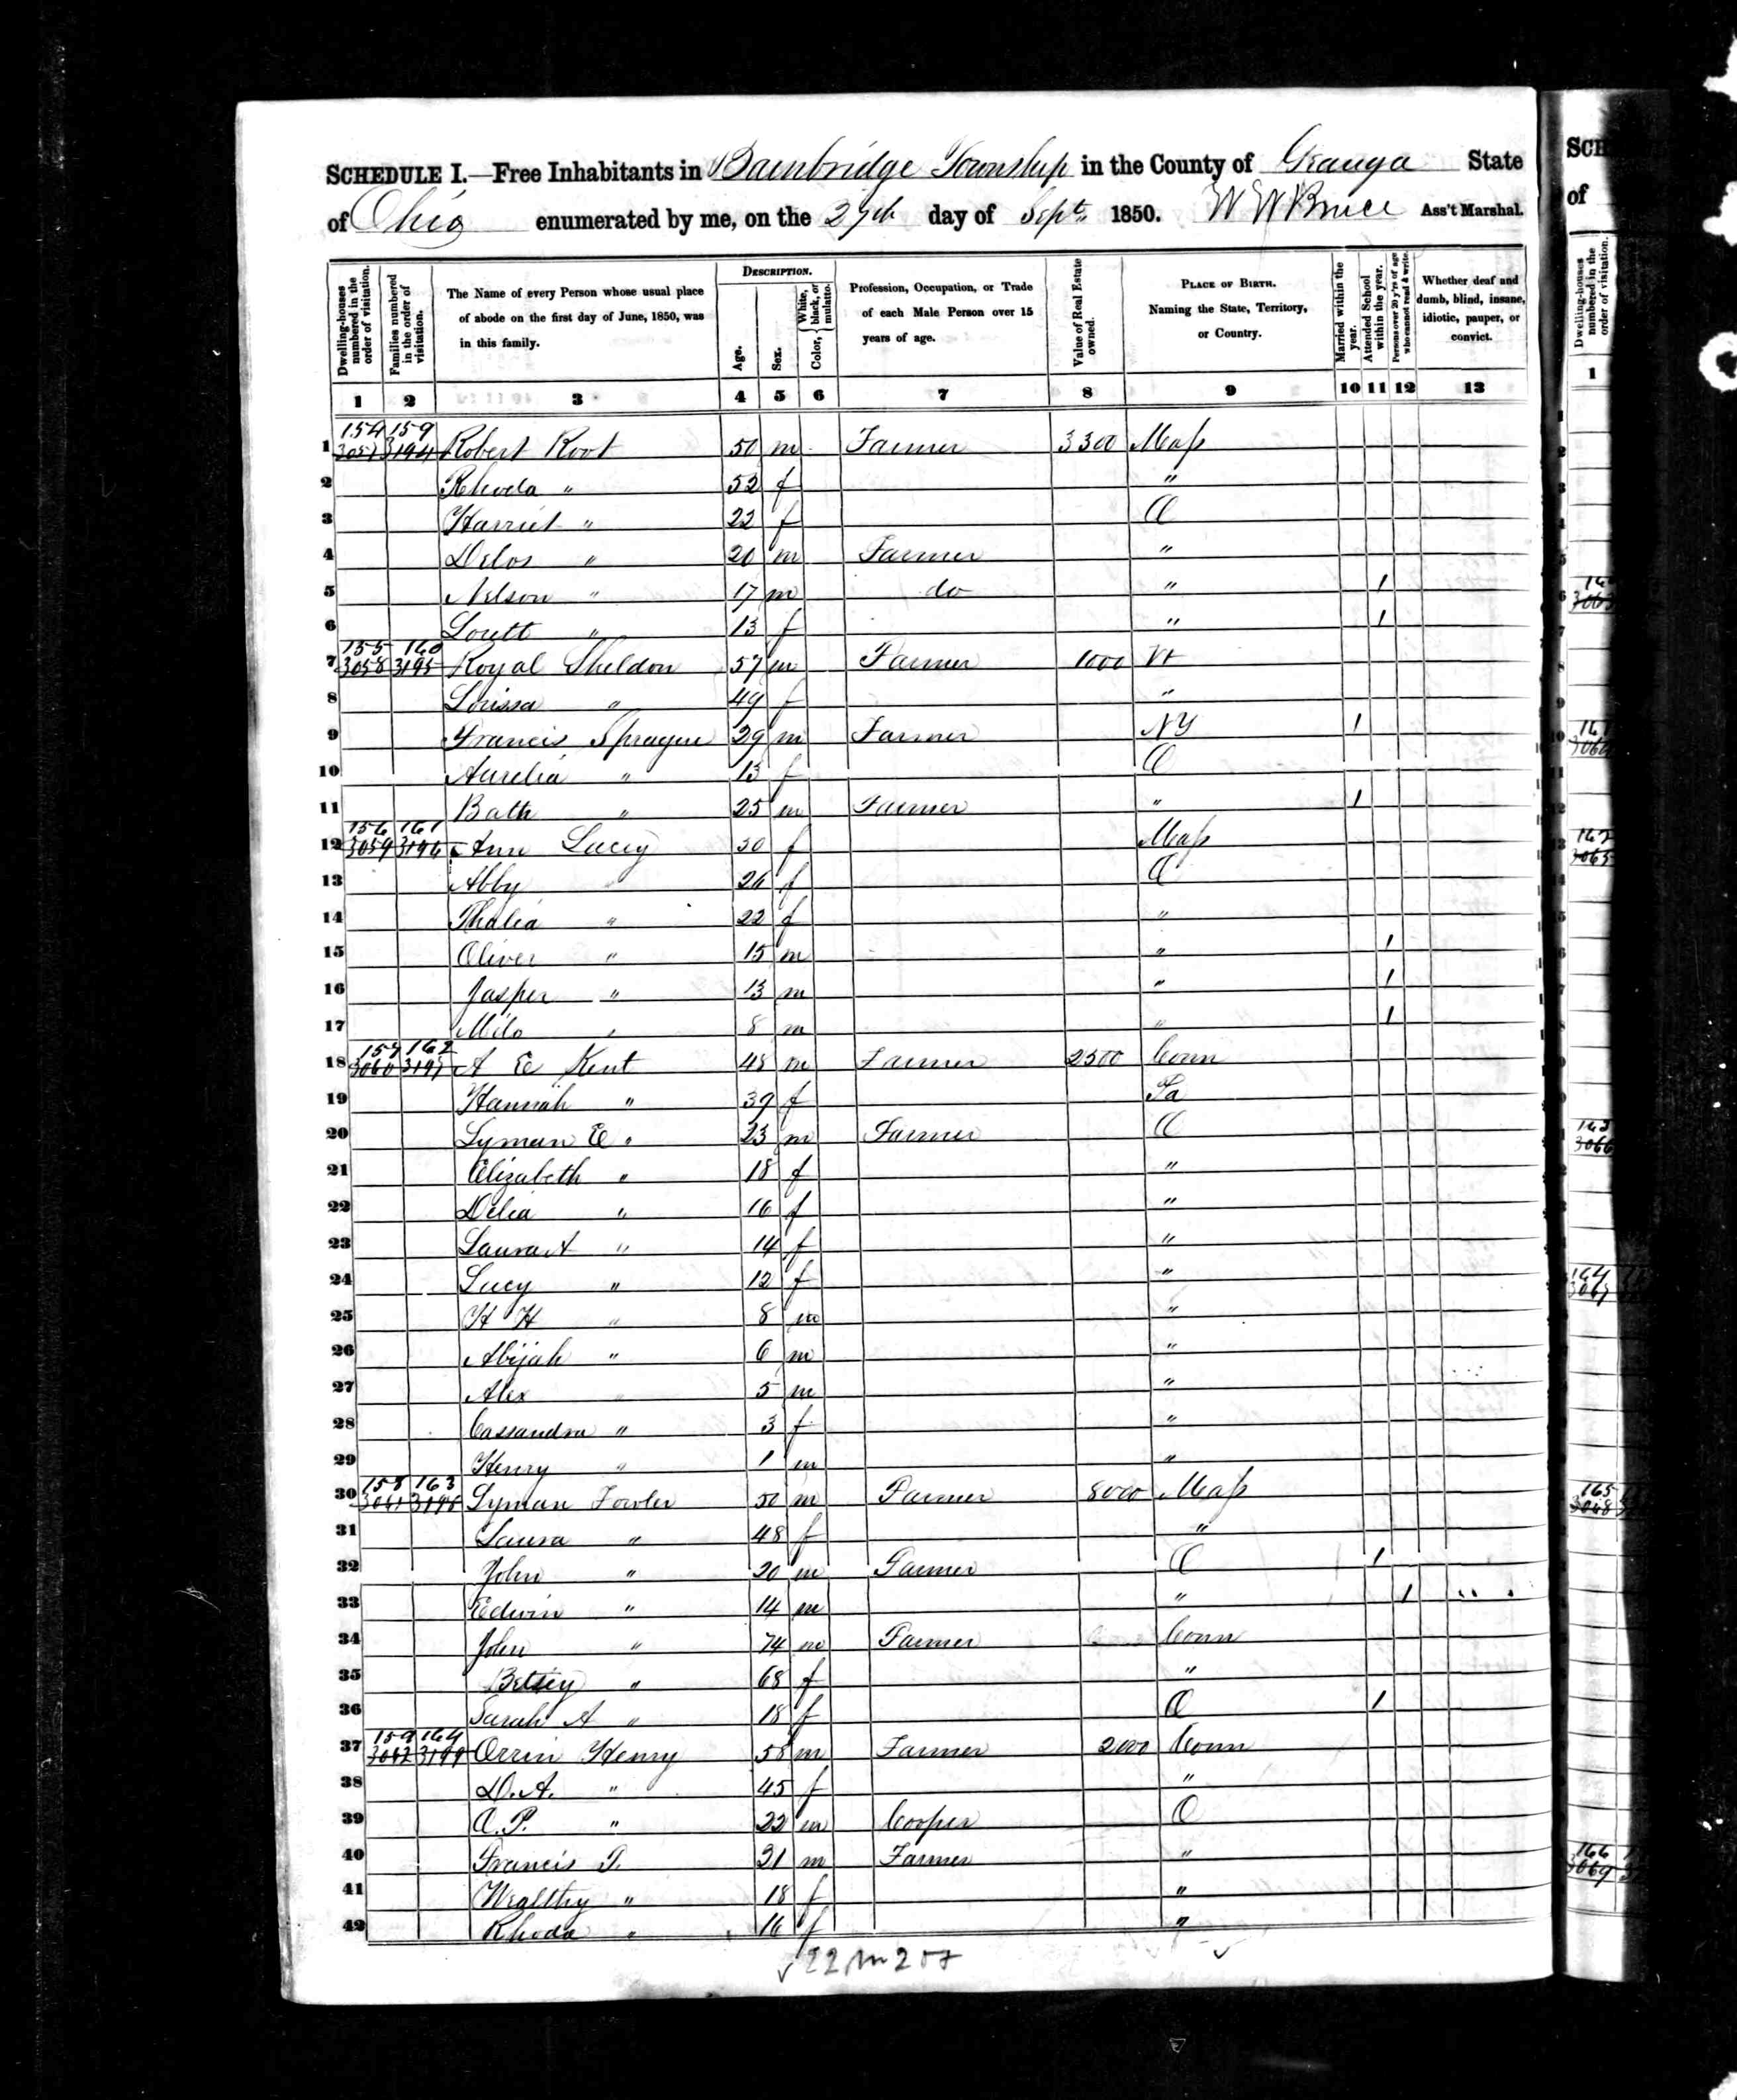 SCHEDULE I.—Free Inhabitants in Bainbridge Township in the County of Geauga State
of Ohio enumerated by me, on the 27th day of Sept. 1850. W W Bruce Ass't Marshal.
Dwelling-houses numbered in the order of visitation.
Families numbered in the order of visitation.
The Name of every Person whose usual place of abode on the first day of June, 1850, was in this family.
DESCRIPTION.
Age.
Sex.
Color, White, black, or mulatto.
Profession, Occupation, or Trade of each Male Person over 15 years of age.
Value of Real Estate owned.
PLACE OF BIRTH. Naming the State, Territory, or Country.
Married within the year.
Attended School within the year.
Persons over 20 y'rs of age who cannot read & write.
Whether deaf and dumb, blind, insane, idiotic, pauper, or convict.
1 2 3 4 5 6 7 8 9 10 11 12 13
154 159
1 3057 3194 Robert Root 50 m Farmer 3300 Mass
2 Rhoda " 52 f "
3 Harriet " 22 f O
4 Delos " 20 m Farmer "
5 Nelson " 17 m do " 1
6 " 13 f " 1
155 160
7 3058 3195 Royal Sheldon 57 m Farmer 1000 Vt
8 Lorissa " 49 f "
9 Francis Sprague 29 m Farmer NY 1
10 Aurelia " 13 f O
11 " 25 m Farmer " 1
156 161
12 3059 3196 Ann Lacey 50 f Mass
13 Abby " 26 f O
14 Thalia " 22 f "
15 Oliver " 15 m " 1
16 Jasper " 13 m " 1
17 Milo " 8 m " 1
157 162
18 3060 3197 A E Kent 48 m Farmer 2500 Conn
19 Hannah " 39 f Pa
20 Lyman E " 23 m Farmer O
21 Elizabeth " 18 f "
22 Delia " 16 f "
23 Laura A " 14 f "
24 Lucy " 12 f "
25 H H " 8 m "
26 Abijah " 6 m "
27 Alex " 5 m "
28 Cassandra " 3 f "
29 Henry " 1 m "
158 163
30 3061 3198 Lyman Fowler 50 m Farmer 8000 Mass
31 Laura " 48 f "
32 John " 20 m Farmer O 1
33 Edwin " 14 m " 1
34 John " 74 m Farmer Conn
35 Betsey " 68 f "
36 Sarah A " 18 f O 1
159 164
37 3062 3199 Orrin Henry 58 m Farmer 2000 Conn
38 D. A. " 45 f "
39 O. P. " 22 m Cooper O
40 Francis P. 21 m Farmer "
41 Wealthy " 18 f "
42 Rhoda " 16 f "